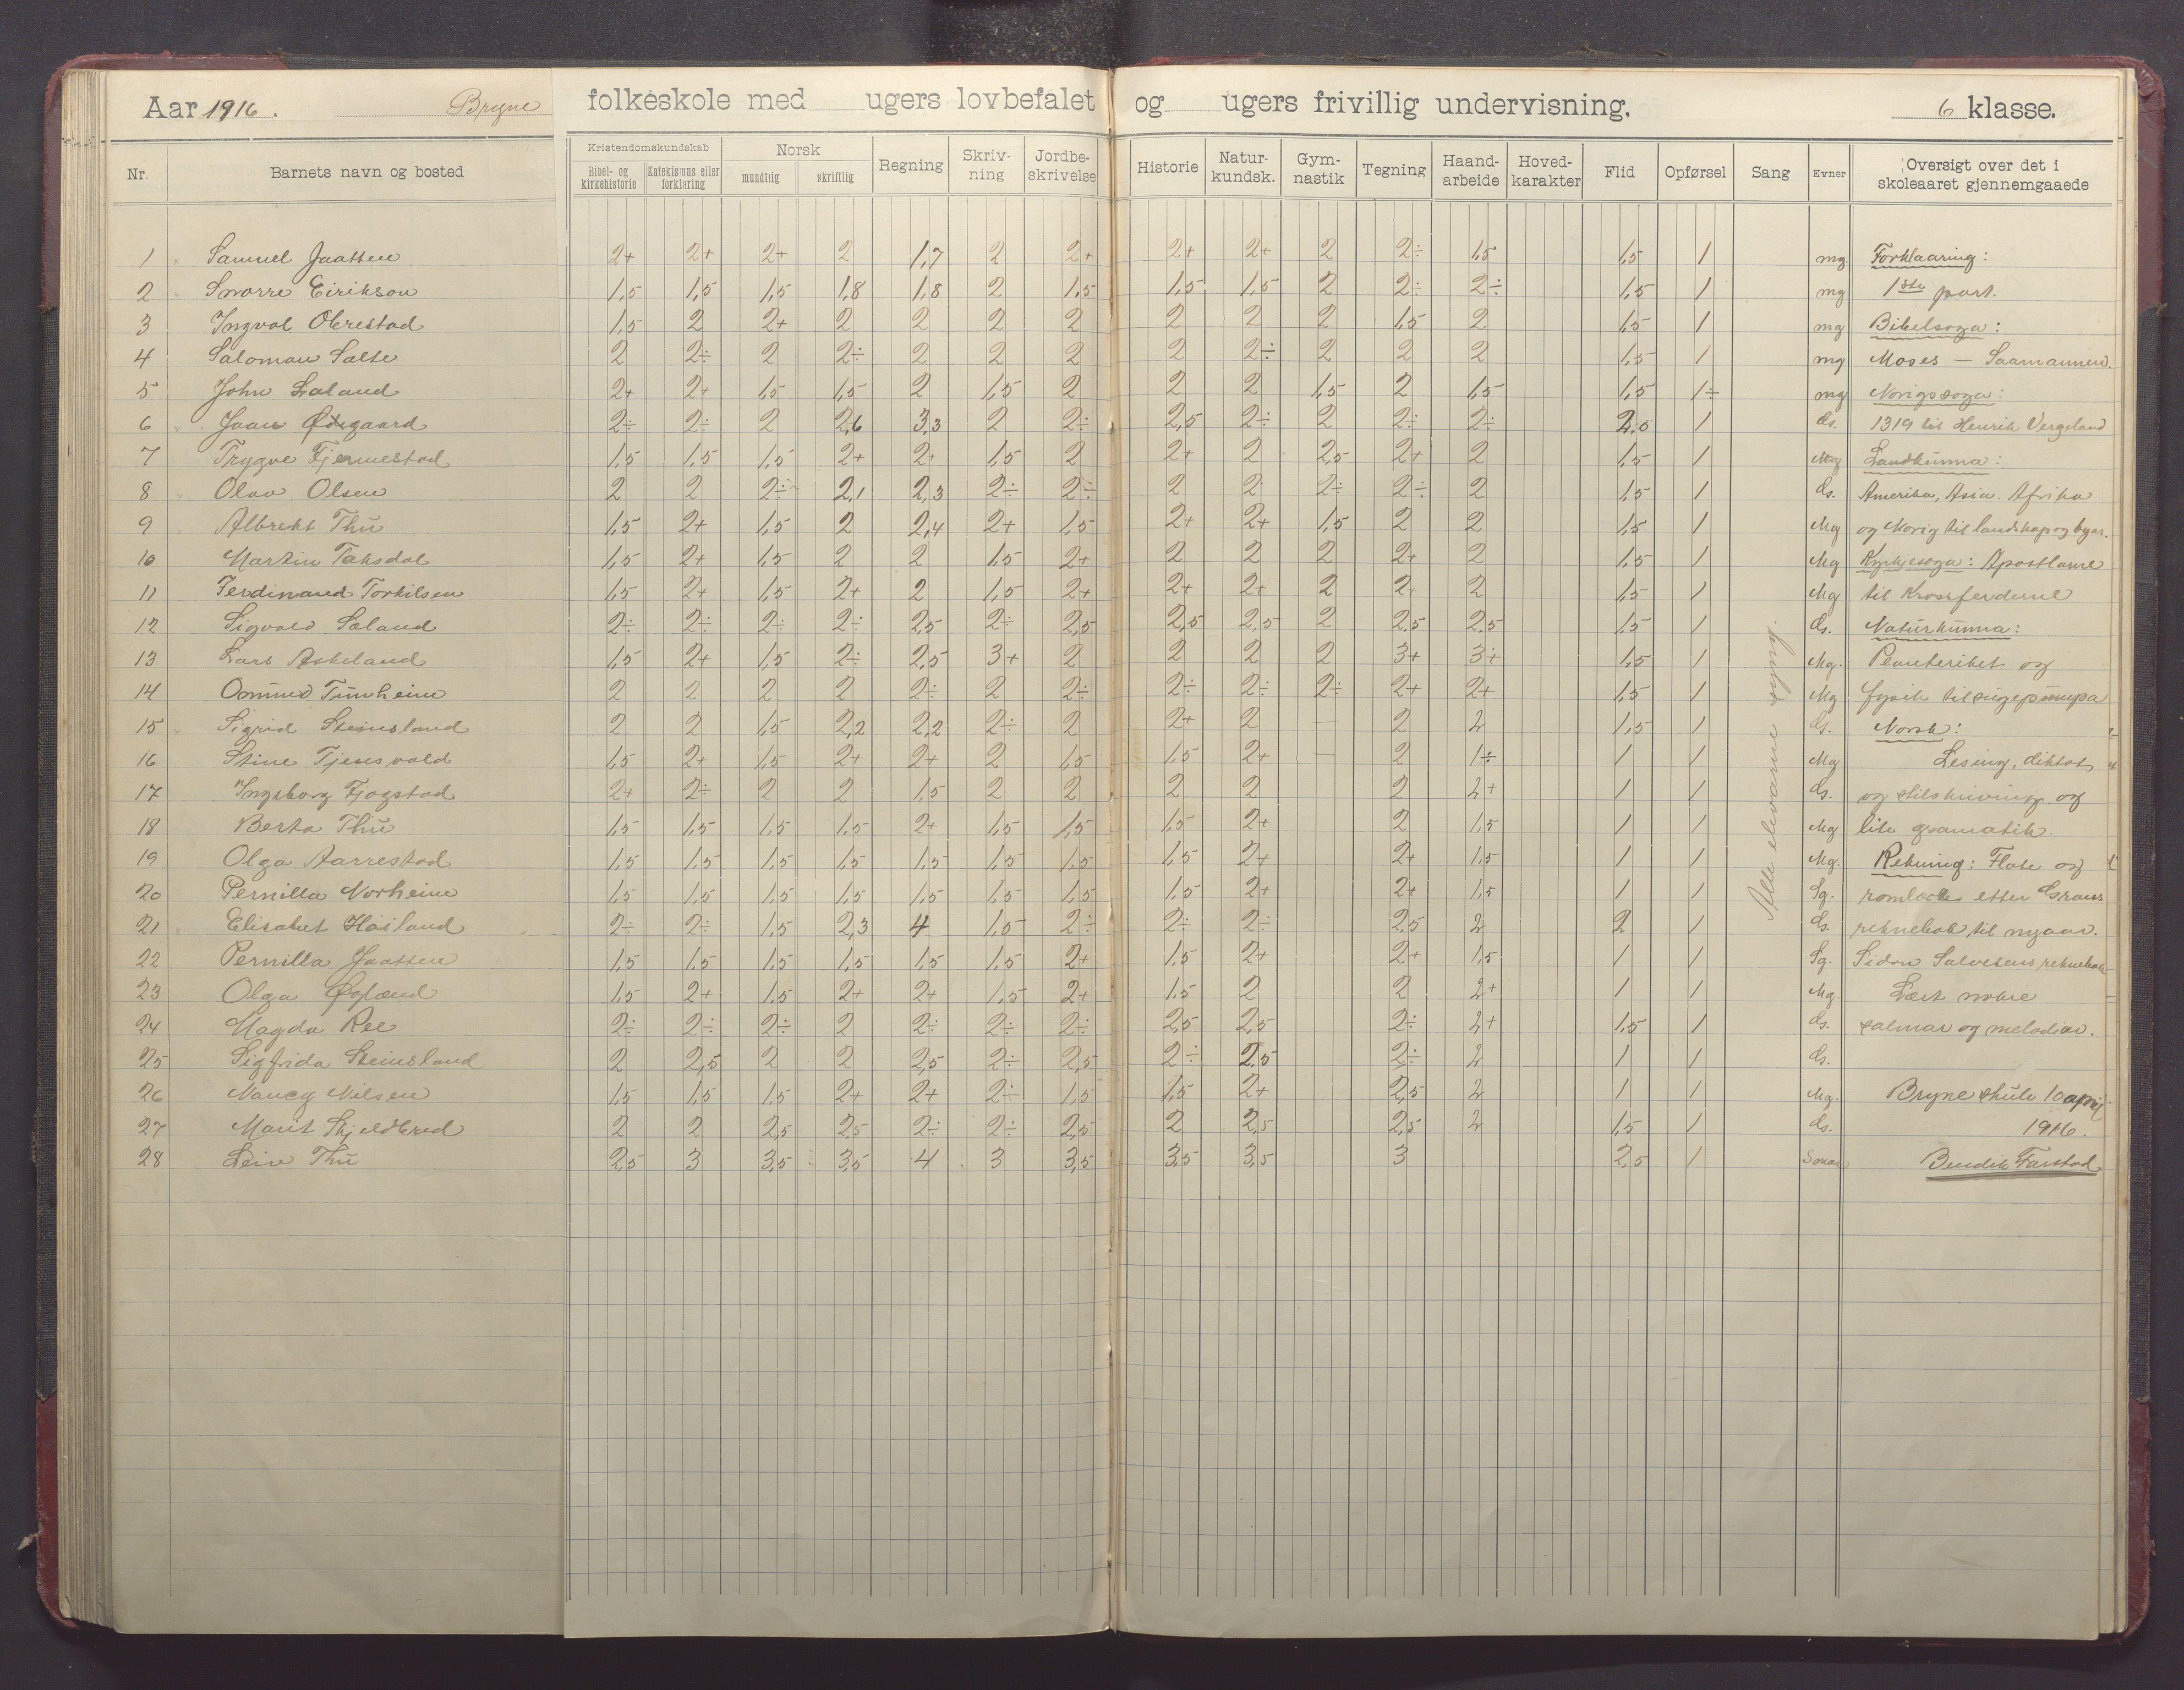 Aar 1916. Bryne folkeskole med ugers lovbefalet og ugers frivillig undervisning. 6 klasse.
Nr. Barnets navn og bosted Kristendomskundskab Bibel- og kirkehistorie Katekismus eller forklaring Norsk mundtlig skriftlig Regning Skrivning Jordbeskrivelse Historie Naturkundsk. Gymnastik Tegning Haandarbeide Hovedkarakter Flid Opførsel Sang Evner Oversigt over det i skoleaaret gjennemgaaede
1 Samuel Jaatten 2+ 2+ 2+ 2 1,7 2 2+ 2+ 2+ 2 2÷ 1,5 1,5 1 mg. Forklaaring:
2 Snorre Eirikson 1,5 1,5 1,5 1,8 1,8 2 1,5 1,5 1,5 2 2÷ 2÷ 1,5 1 mg 1ste part.
3 Ingval Obrestad 1,5 2 2+ 2 2 2 2 2 2 2 1,5 2 1,5 1 mg Bibelsoga:
4 Saloman Salte 2 2÷ 2 2÷ 2 2 2 2 2÷ 2 2 2 1,5 1 mg Moses — Saamannen.
5 John Laland 2+ 2+ 1,5 1,5 2 1,5 2 2 2 1,5 2 1,5 1,5 1÷ mg Norigssoga:
6 Jaan Ødegaard 2÷ 2÷ 2 2,6 3,3 2 2÷ 2,5 2÷ 2 2÷ 2÷ 2,0 1 Ds. 1319 til Henrik Vergeland
7 Trygve Fjermestad 1,5 1,5 1,5 2+ 2+ 1,5 2 2+ 2 2,5 2+ 2 1,5 1 Mg Landkunna:
8 Olav Olsen 2 2 2÷ 2,1 2,3 2÷ 2÷ 2 2 2÷ 2÷ 2 1,5 1 Ds. Amerika, Asia. Afrika
9 Albrekt Thu 1,5 2+ 1,5 2 2,4 2+ 1,5 2+ 2+ 1,5 2 2 1,5 1 Mg og Norig til landskap og byar.
10 Martin Taksdal 1,5 2+ 1,5 2 2 1,5 2+ 2 2 2 2+ 2 1,5 1 Mg Kyrkjesoga: Apostlarne
11 Ferdinand Torkilsen 1,5 2+ 1,5 2+ 2 1,5 2+ 2+ 2+ 2 2+ 2 1,5 1 Mg til Krossferderne
12 Sigvald Søland 2÷ 2÷ 2÷ 2÷ 2,5 2÷ 2,5 2,5 2,5 2 2,5 2,5 1,5 1 Ds. Naturkunna:
13 Lars Askeland 1,5 2+ 1,5 2÷ 2,5 3+ 2 2 2 2 3+ 3+ 1,5 1 Mg. Planteriket og
14 Osmund Tunheim 2 2 2 2 2÷ 2 2÷ 2÷ 2÷ 2÷ 2+ 2+ 1,5 1 Mg fysik til sugepumpa
15 Sigrid Steinsland 2 2 1,5 2,2 2,2 2÷ 2 2+ 2 — 2 2 1,5 1 Ds. Norsk:
16 Stine Tjensvold 1,5 2+ 1,5 2+ 2+ 2 1,5 1,5 2+ — 2 1÷ 1 1 Mg Lesing, diktat,
17 Ingeborg Fjogstad 2+ 2÷ 2 2 1,5 2 2 2 2 2 2+ 1 1 Ds. og stilskriving og
18 Berta Thu 1,5 1,5 1,5 1,5 2+ 1,5 1,5 1,5 2+ 2 1,5 1 1 Mg lite gramatik.
19 Olga Aarrestad 1,5 1,5 1,5 1,5 1,5 1,5 1,5 1,5 2+ 2+ 1,5 1 1 Mg. Rekning: Flate og
20 Pernilla Norheim 1,5 1,5 1,5 1,5 1,5 1,5 1,5 1,5 2+ 2+ 1,5 1 1 Sg. romlære etter
21 Elisabet Høiland 2÷ 2÷ 1,5 2,3 4 1,5 2÷ 2÷ 2÷ 2,5 2 2 1 Ds. reknebok til nyaar.
22 Pernilla Jaatten 1,5 1,5 1,5 1,5 1,5 1,5 2+ 1,5 2+ 2+ 1,5 1 1 Sg. Sidan Salvesens reknebok
23 Olga Øgland 1,5 2+ 1,5 2+ 2+ 1,5 2+ 1,5 2 2 2+ 1 1 Mg. Lært nokre
24 Magda Ree 2÷ 2÷ 2÷ 2 2÷ 2÷ 2÷ 2,5 2,5 2÷ 2+ 1,5 1 Ds. salmar og melodiar.
25 Sigfrida Steinsland 2 2,5 2 2 2,5 2÷ 2,5 2÷ 2,5 2÷ 2 1 1 Ds.
26 Nancy Nilsen 1,5 1,5 1,5 2+ 2+ 2÷ 1,5 1,5 2+ 2,5 2 1 1 Mg. Bryne skule 10 april
27 Marit Skjeldbred 2 2 2,5 2,5 2÷ 2÷ 2,5 2 2,5 2,5 2 1,5 1 Ds. 1916.
28 Leiv Thu 2,5 3 3,5 3,5 4 3 3,5 3,5 3,5 3 2,5 1 Bendik Farstad
Alle elevarne syng.